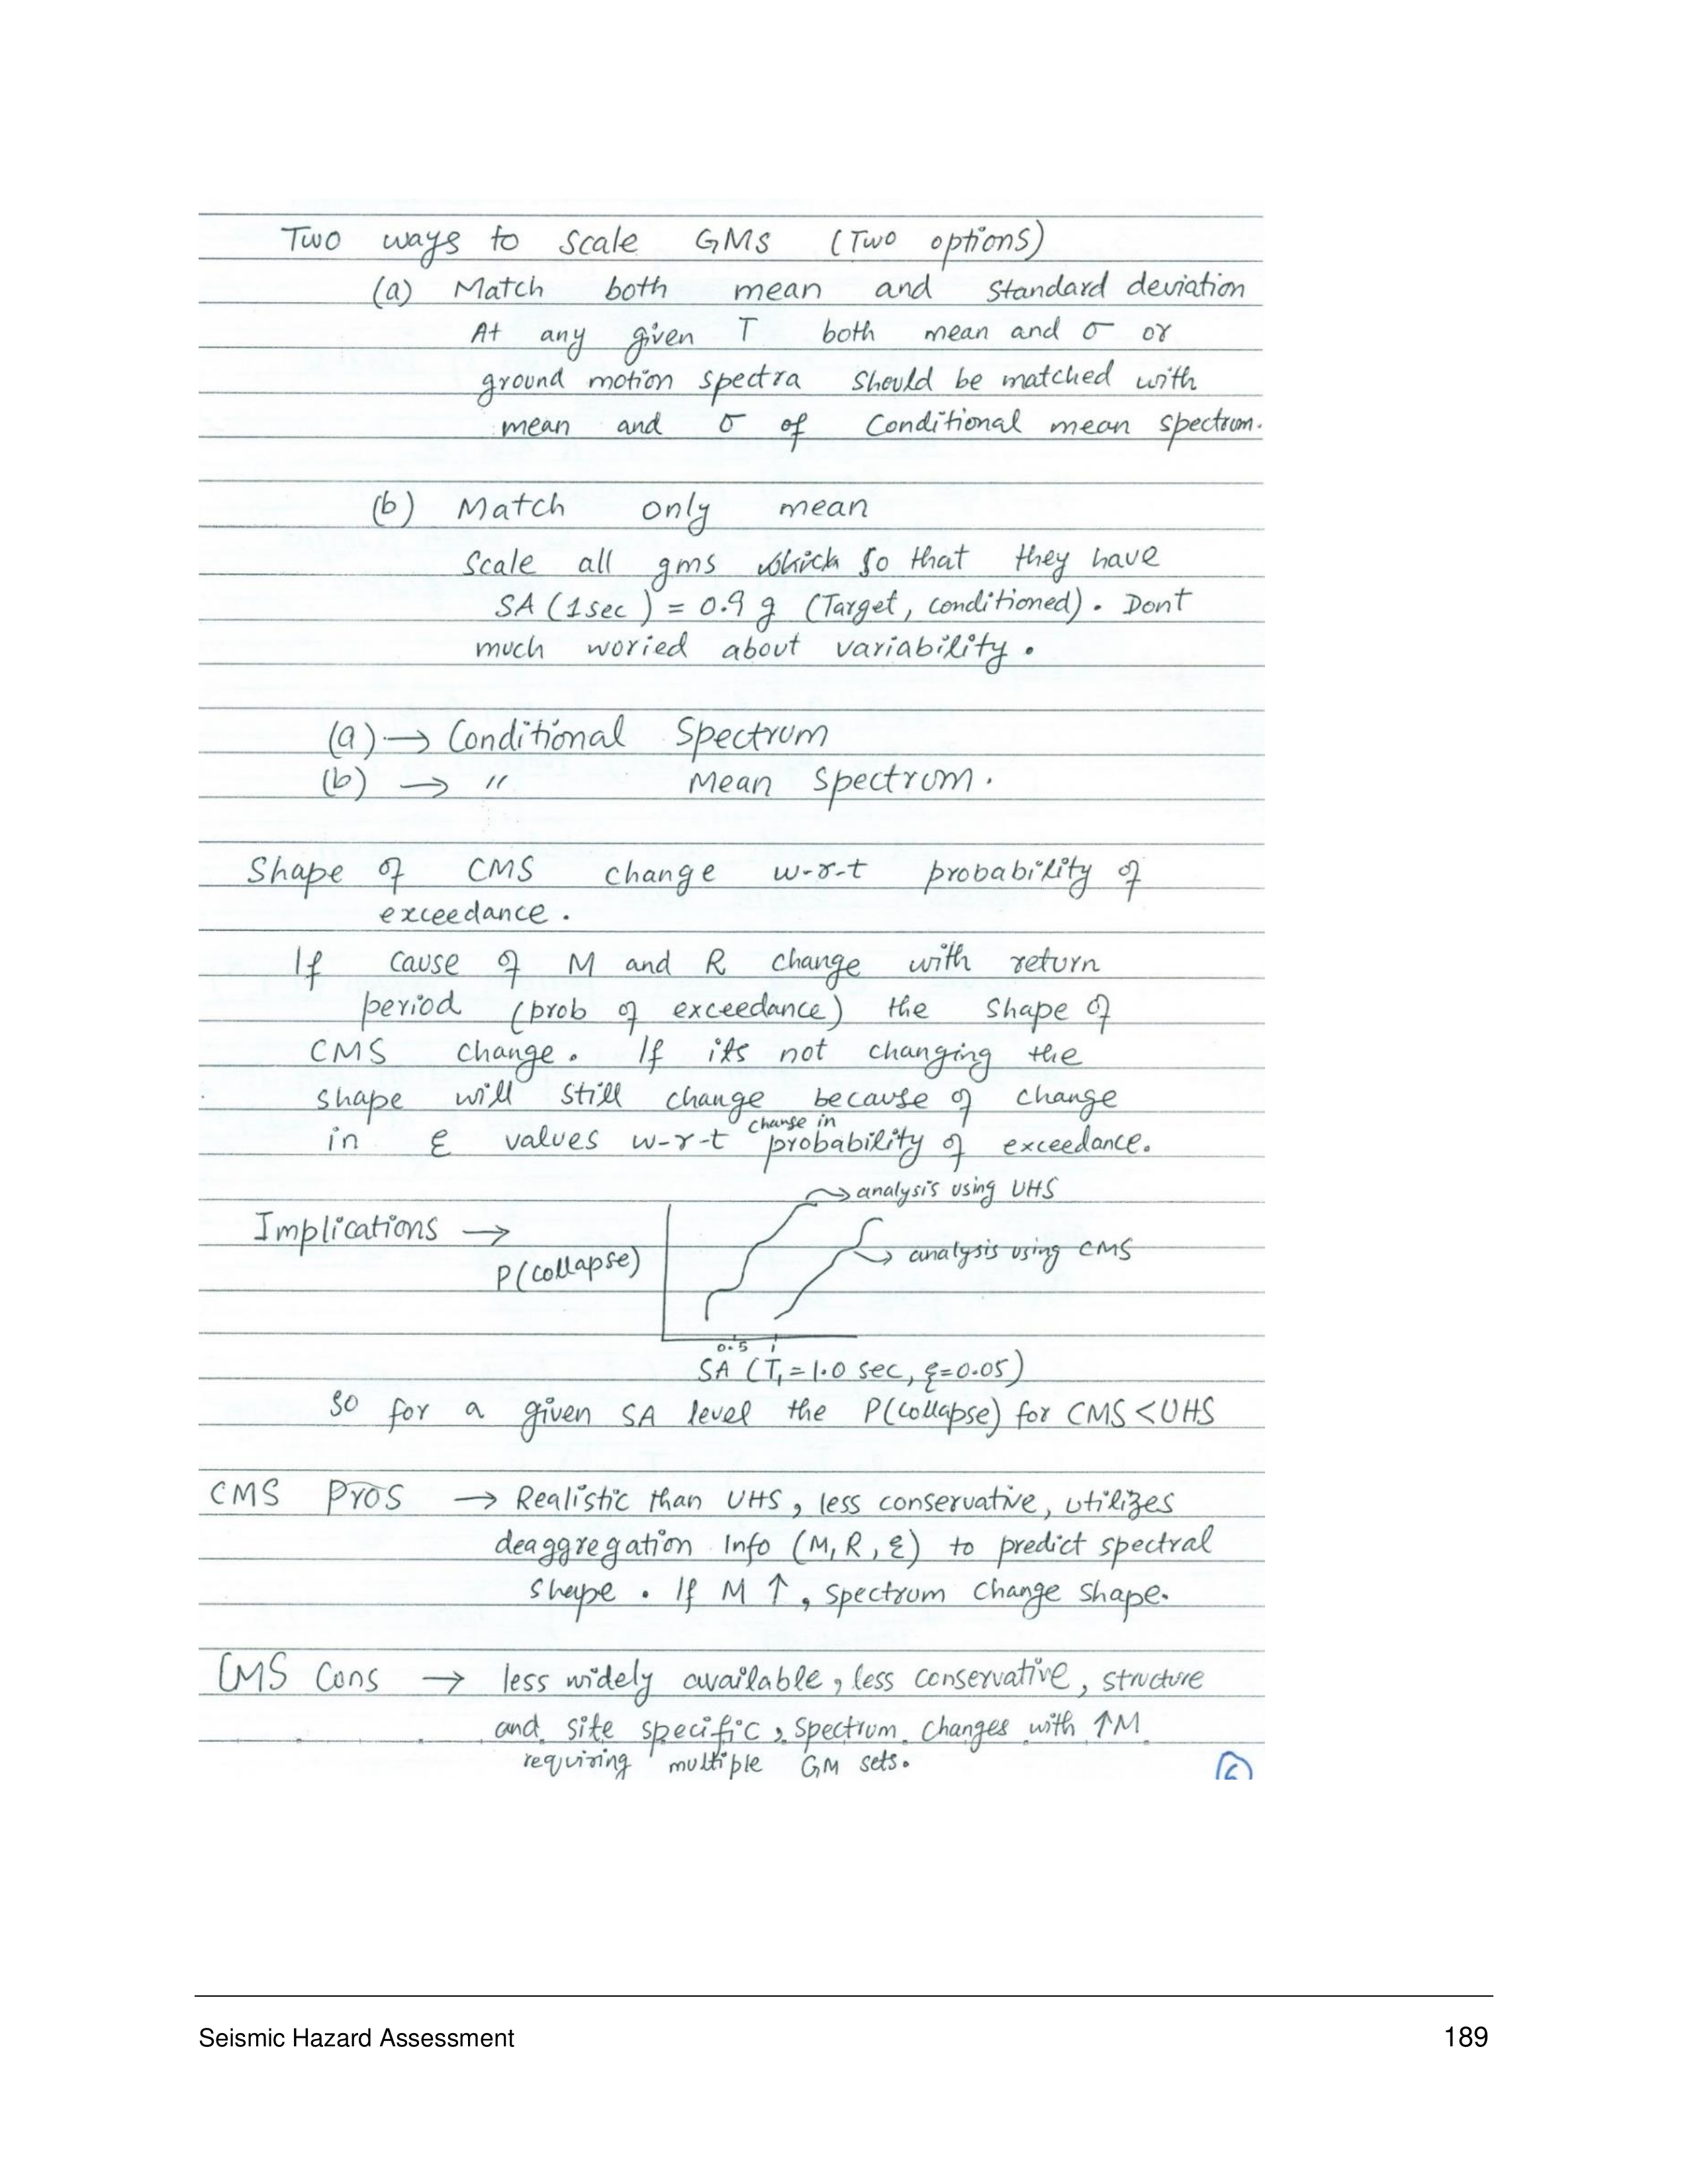 Two ways to scale GMs (Two options)
(a) Match both mean and standard deviation
At any given T both mean and σ or
ground motion spectra should be matched with
mean and σ of Conditional mean spectrum.
(b) Match only mean
Scale all gms which so that they have
SA (1sec) = 0.9 g (Target, conditioned). Dont
much woried about variability.
(a) → Conditional Spectrum
(b) → " Mean Spectrum.
Shape of CMS change w-r-t probability of
exceedance.
If cause of M and R change with return
period (prob of exceedance) the shape of
CMS change. If its not changing the
shape will still change because of change
in ε values w-r-t change in probability of exceedance.
analysis using UHS
Implications →
analysis using CMS
P(collapse)
0.5 1
SA (T₁ = 1.0 sec, ξ=0.05)
so for a given SA level the P(collapse) for CMS < UHS
CMS Pros → Realistic than UHS, less conservative, utilizes
deaggregation Info (M, R, ε) to predict spectral
shape. If M ↑, spectrum change shape.
CMS Cons → less widely available, less conservative, structure
and site specific, spectrum changes with ↑M
requiring multiple GM sets.
6
Seismic Hazard Assessment 189